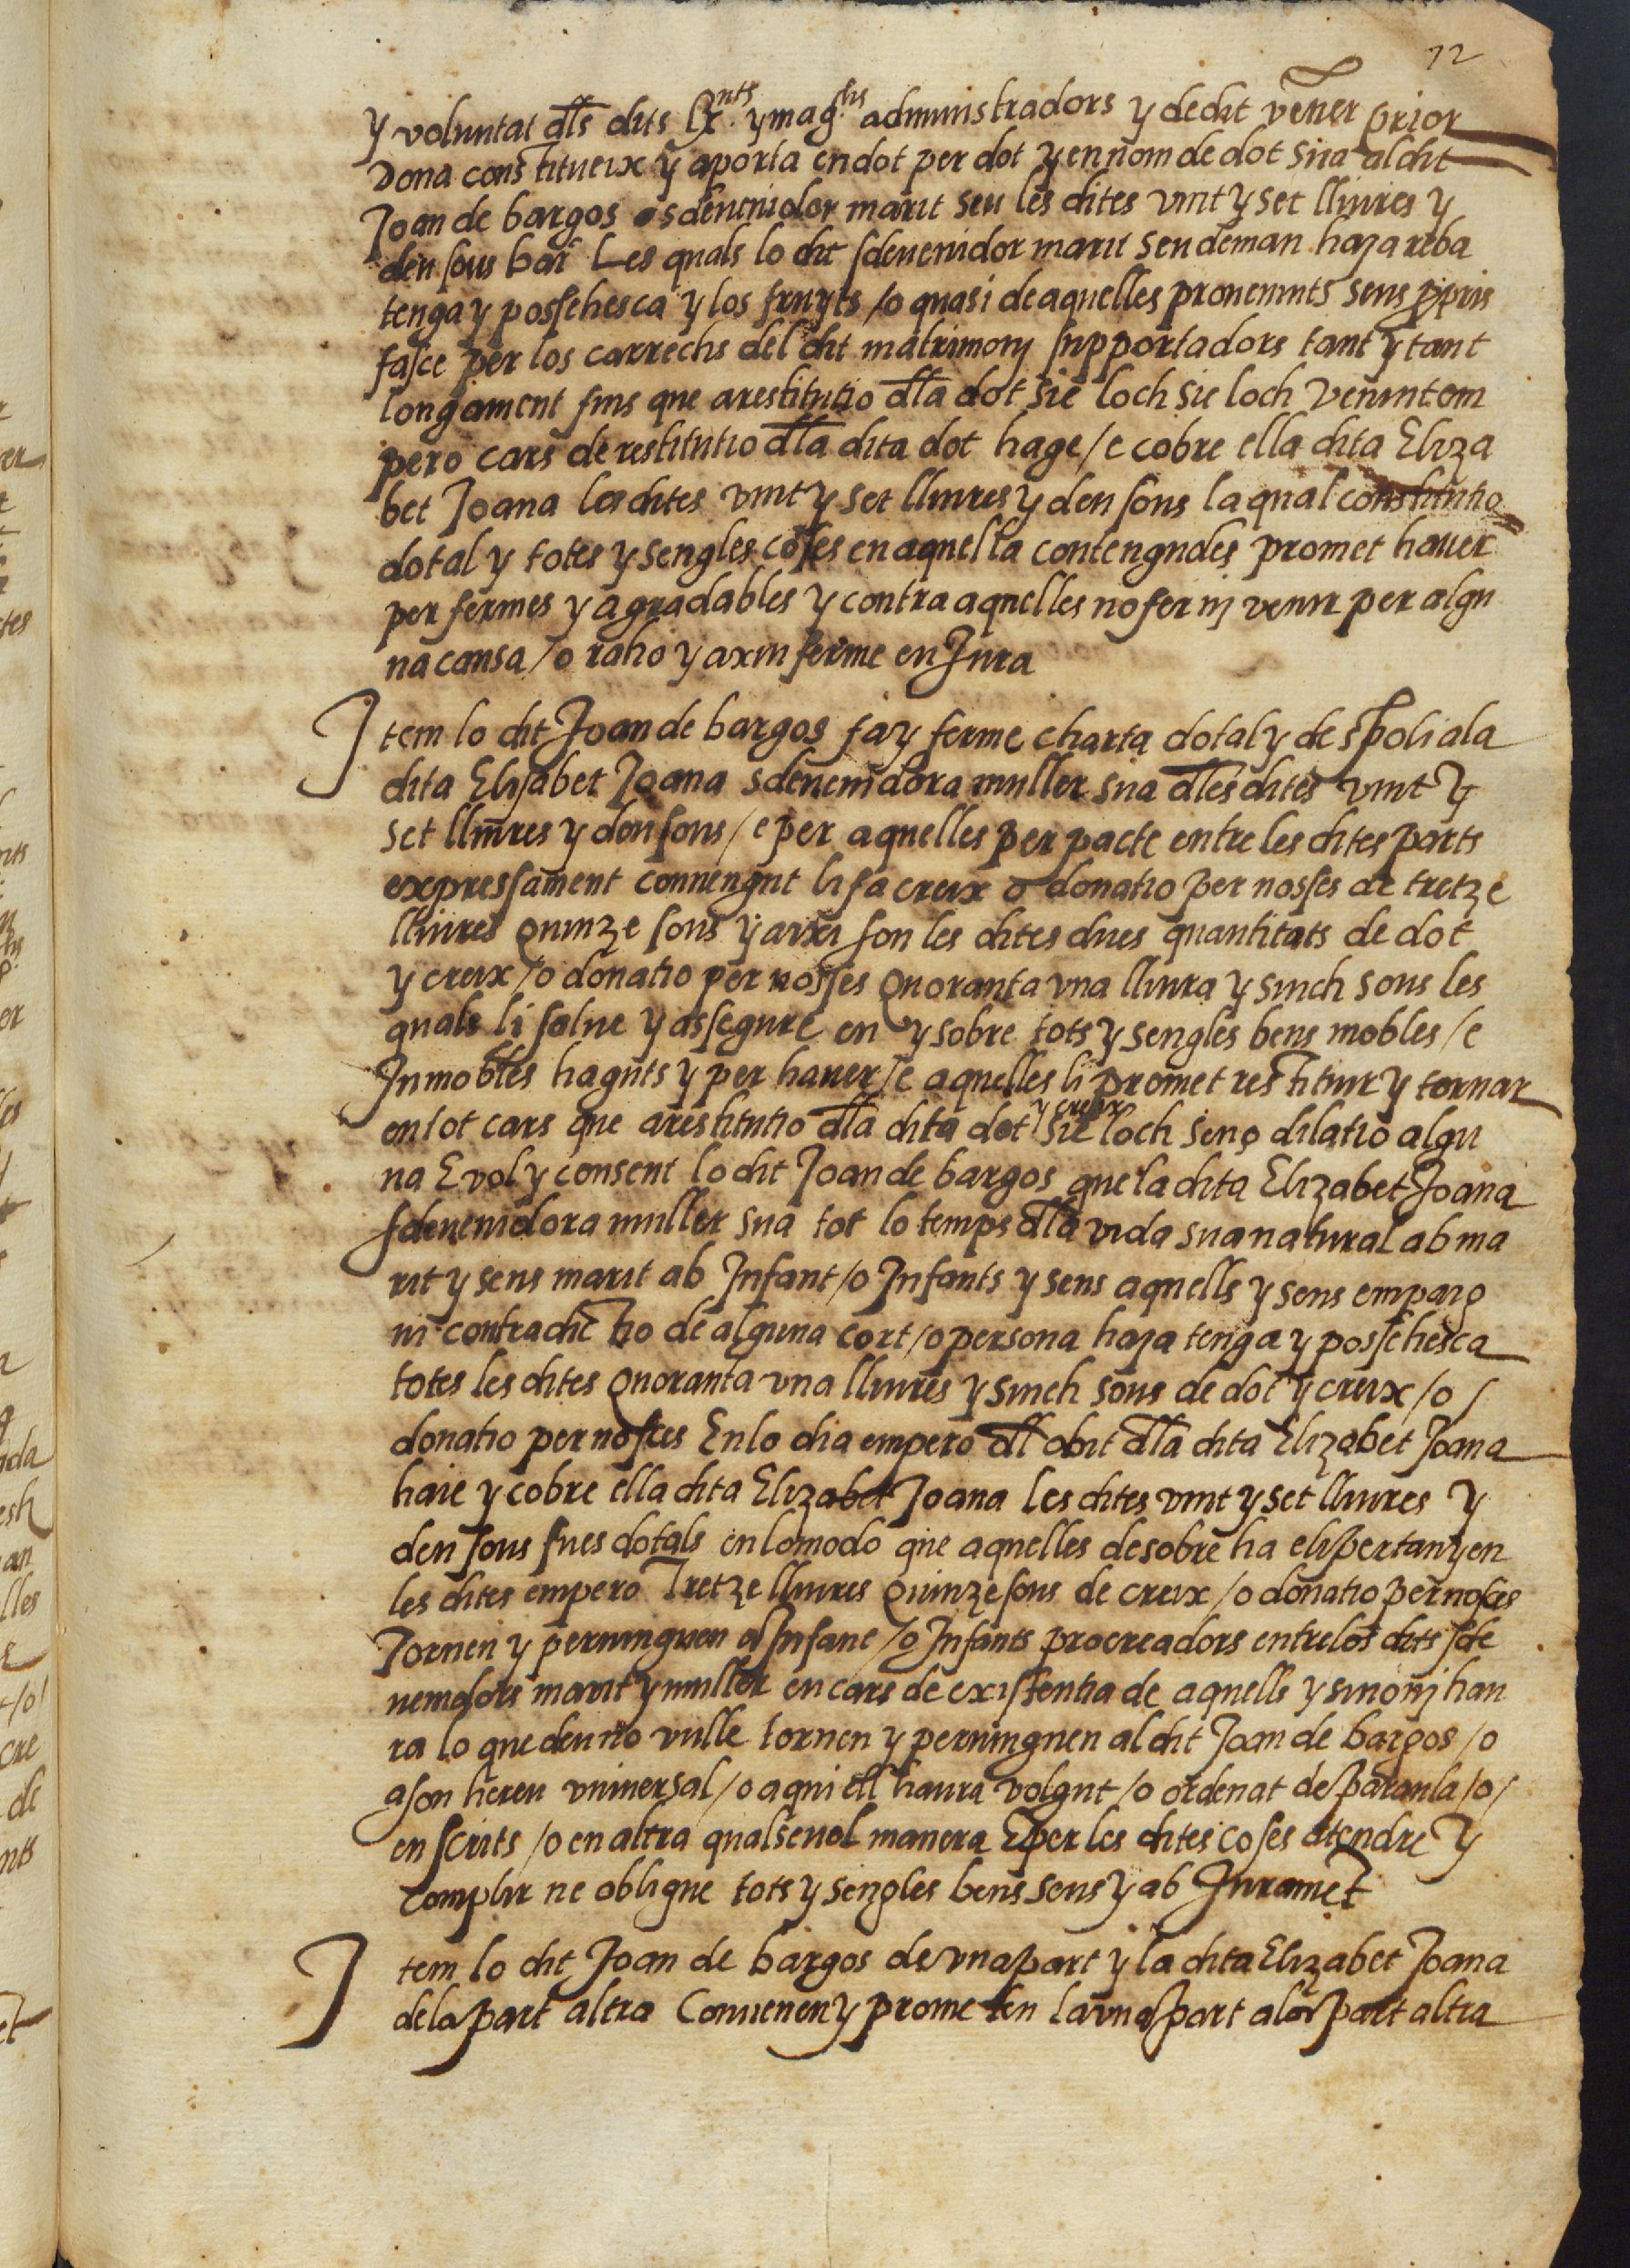 72
y voluntat dls dits Rnts. y mag.chs administradors y de dit vener prior
Dona constitueix y aporta en dot per dot y en nom de dot sua al dit
Joan de bargos esdeuenidor marit seu les dites vint y set lliures y
deu sous bar Les quals lo dit sdeuenidor marit seu deman haja reba
tenga y possehesca y los fruyts /o quasi de aquelles prouenints sens ppris
fasce per los carrechs del dit matrimonj supportadors tant y tant
longament fins que a restitutio dla dot sie loch sie loch venint em
pero cars de restitutio dla dita dot hage /e cobre ella dita Eliza
bet Joana les dites vint y set lliures y deu sous la qual constitutio
dotal y totes y sengles coses en aquella contengudes promet hauer
per fermes y agradables y contra aquelles no fer nj venir per algu
na causa /o raho y axi u ferme en Jura
Item lo dit Joan de bargos fa y ferme charta dotal y de spoli a la
dita Elisabet Joana sdeuenidora muller sua dles dites vint y
set lliures y deu sous /e per aquelles per pacte entre les dites parts
expressament conuengut li fa creix o donatio per nosses de tretze
lliures Quinze sous y axi son les dites dues quantitats de dot
y creix /o donatio per nosses Quoranta vna lliura y sinch sous les
quals li salue y assegure en y sobre tots y sengles bens mobles /e
Inmobles haguts y per hauer /e aquelles li promet restituir y tornar
en tot cars que a restitutio dla dita dot y creix sie loch sens dilatio algu
na E vol y consent lo dit Joan de bargos que la dita Elizabet Joana
sdeuenidora muller sua tot lo temps dla vida sua natural ab ma
rit y sens marit ab Infant /o Infants y sens aquells y sens empaig
ni contradictio de alguna cort /o persona haja tenga y possehesca
totes les dites Quoranta vna lliures y sinch sous de dot y creix /o /
donatio per nosces En lo dia empero dl obit dla dita Elizabet Joana
haie y cobre ella dita Elizabet Joana les dites vint y set lliures y
deu sous sues dotals en lo modo que aquelles desobre ha e li pertanyen
les dites empero Tretze lliures Quinze sous de creix /o donatio per nosces
Tornen y peruinguen al Infant /o Infants procreadors entre los dits sde
uenidors marit y muller en cars de existentia de aquells y sino nj hau
ra lo que deu no vulle tornen y peruinguen al dit Joan de bargos /o
a son hereu vniuersal /o a qui ell haura volgut /o ordenat de paraula /o /
en scrits /o en altra qualseuol manera E per les dites coses atendre y
complir ne obligue tots y sengles bens seus y ab Jurament
Item lo dit Joan de bargos de vna part y la dita Elizabet Joana
de la part altra Conuenen y prometen la vna part a la part altra